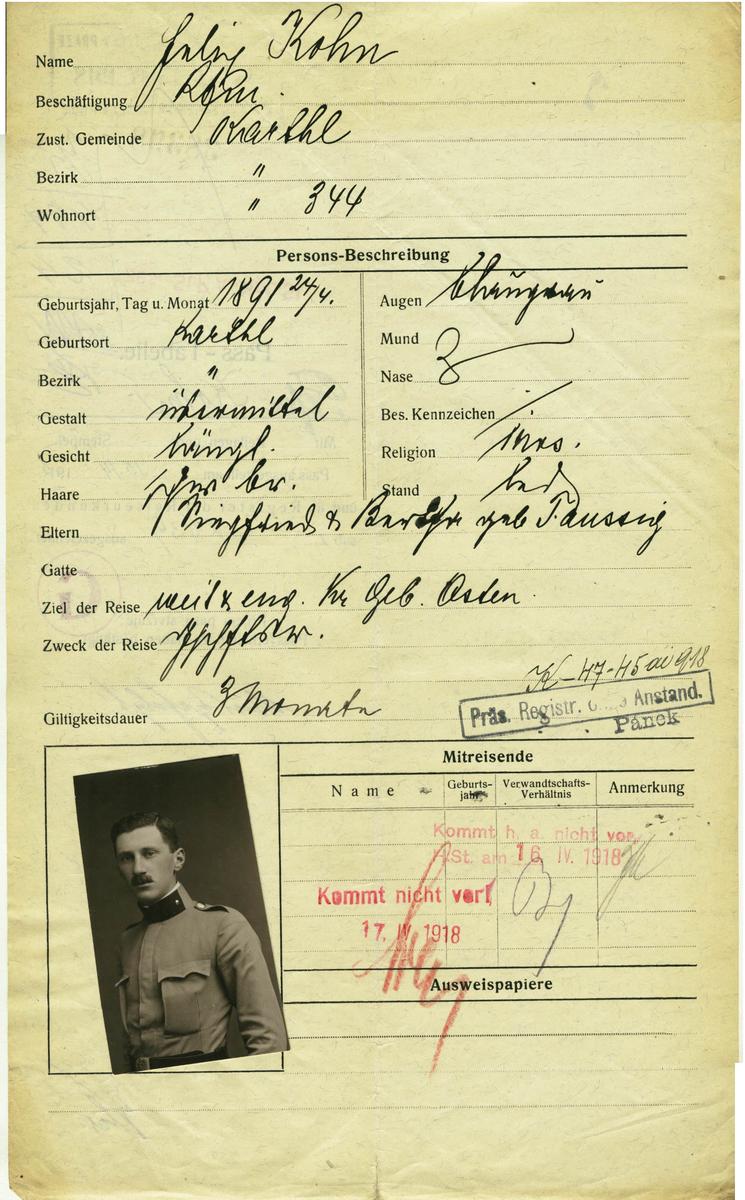 Name Felix Kohn
Beschäftigung Kfm.
Zust. Gemeinde Karthl
Bezirk "
Wohnort " 344
Persons-Beschreibung
Geburtsjahr, Tag u. Monat 1891 24/4.
Geburtsort Karthl
Bezirk "
Gestalt übermittel
Gesicht längl.
Haare schw br.
Augen blaugrau
Mund
Nase
Bes. Kennzeichen /
Religion mos.
Stand led
Eltern Siegfried & Bertha geb Taussig
Gatte
Ziel der Reise weit & eng. Kr Geb. Osten
Zweck der Reise
K-47-45 918
Giltigkeitsdauer 3 Monate
Präs. Registr. ohne Anstand.
Pánek
Mitreisende
Name
Geburts-
jahr
Verwandtschafts-
Verhältnis
Anmerkung
Kommt h. a. nicht vor.
St. am 16. IV. 1918
Kommt nicht vor!
17. IV. 1918
Ausweispapiere